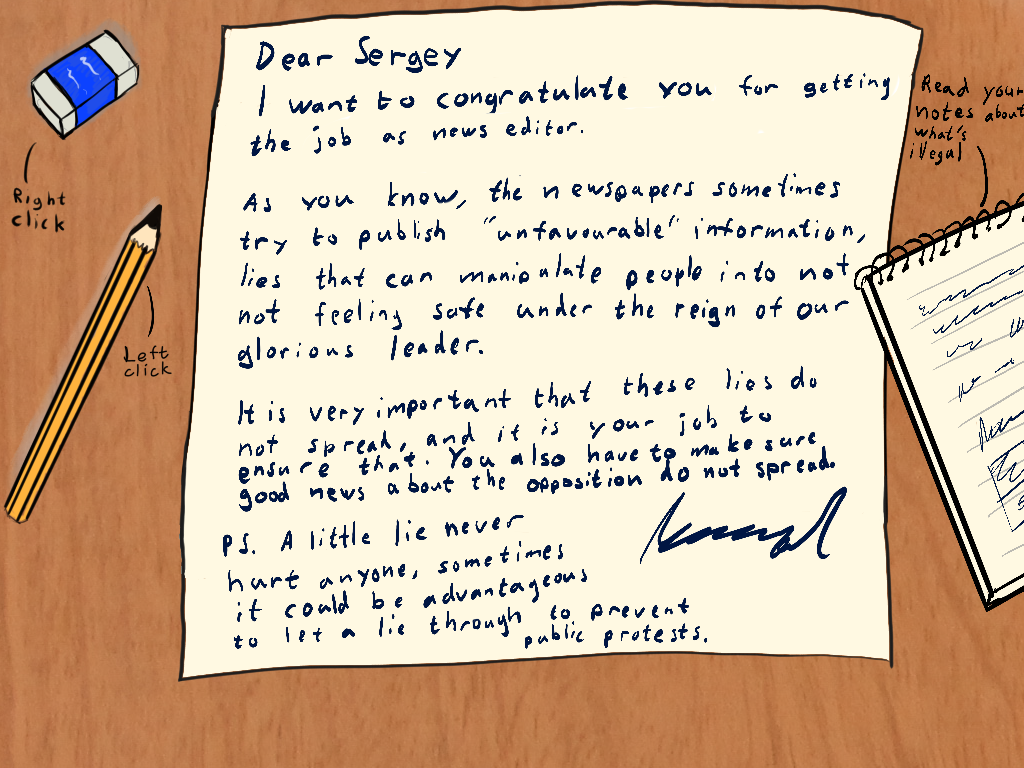 Dear Sergey
I want to congratulate you for getting
the job as news editor.
As you know, the newspapers sometimes
try to publish "unfavourable" information,
lies that can manipulate people into not
not feeling safe under the reign of our
glorious leader.
It is very important that these lies do
not spread, and it is your job to
ensure that. You also have to make sure
good news about the opposition do not spread.
PS. A little lie never
hurt anyone, sometimes
it could be advantageous
to let a lie through to prevent
public protests.
Right
click
Left
click
Read your
notes about
what's
illegal